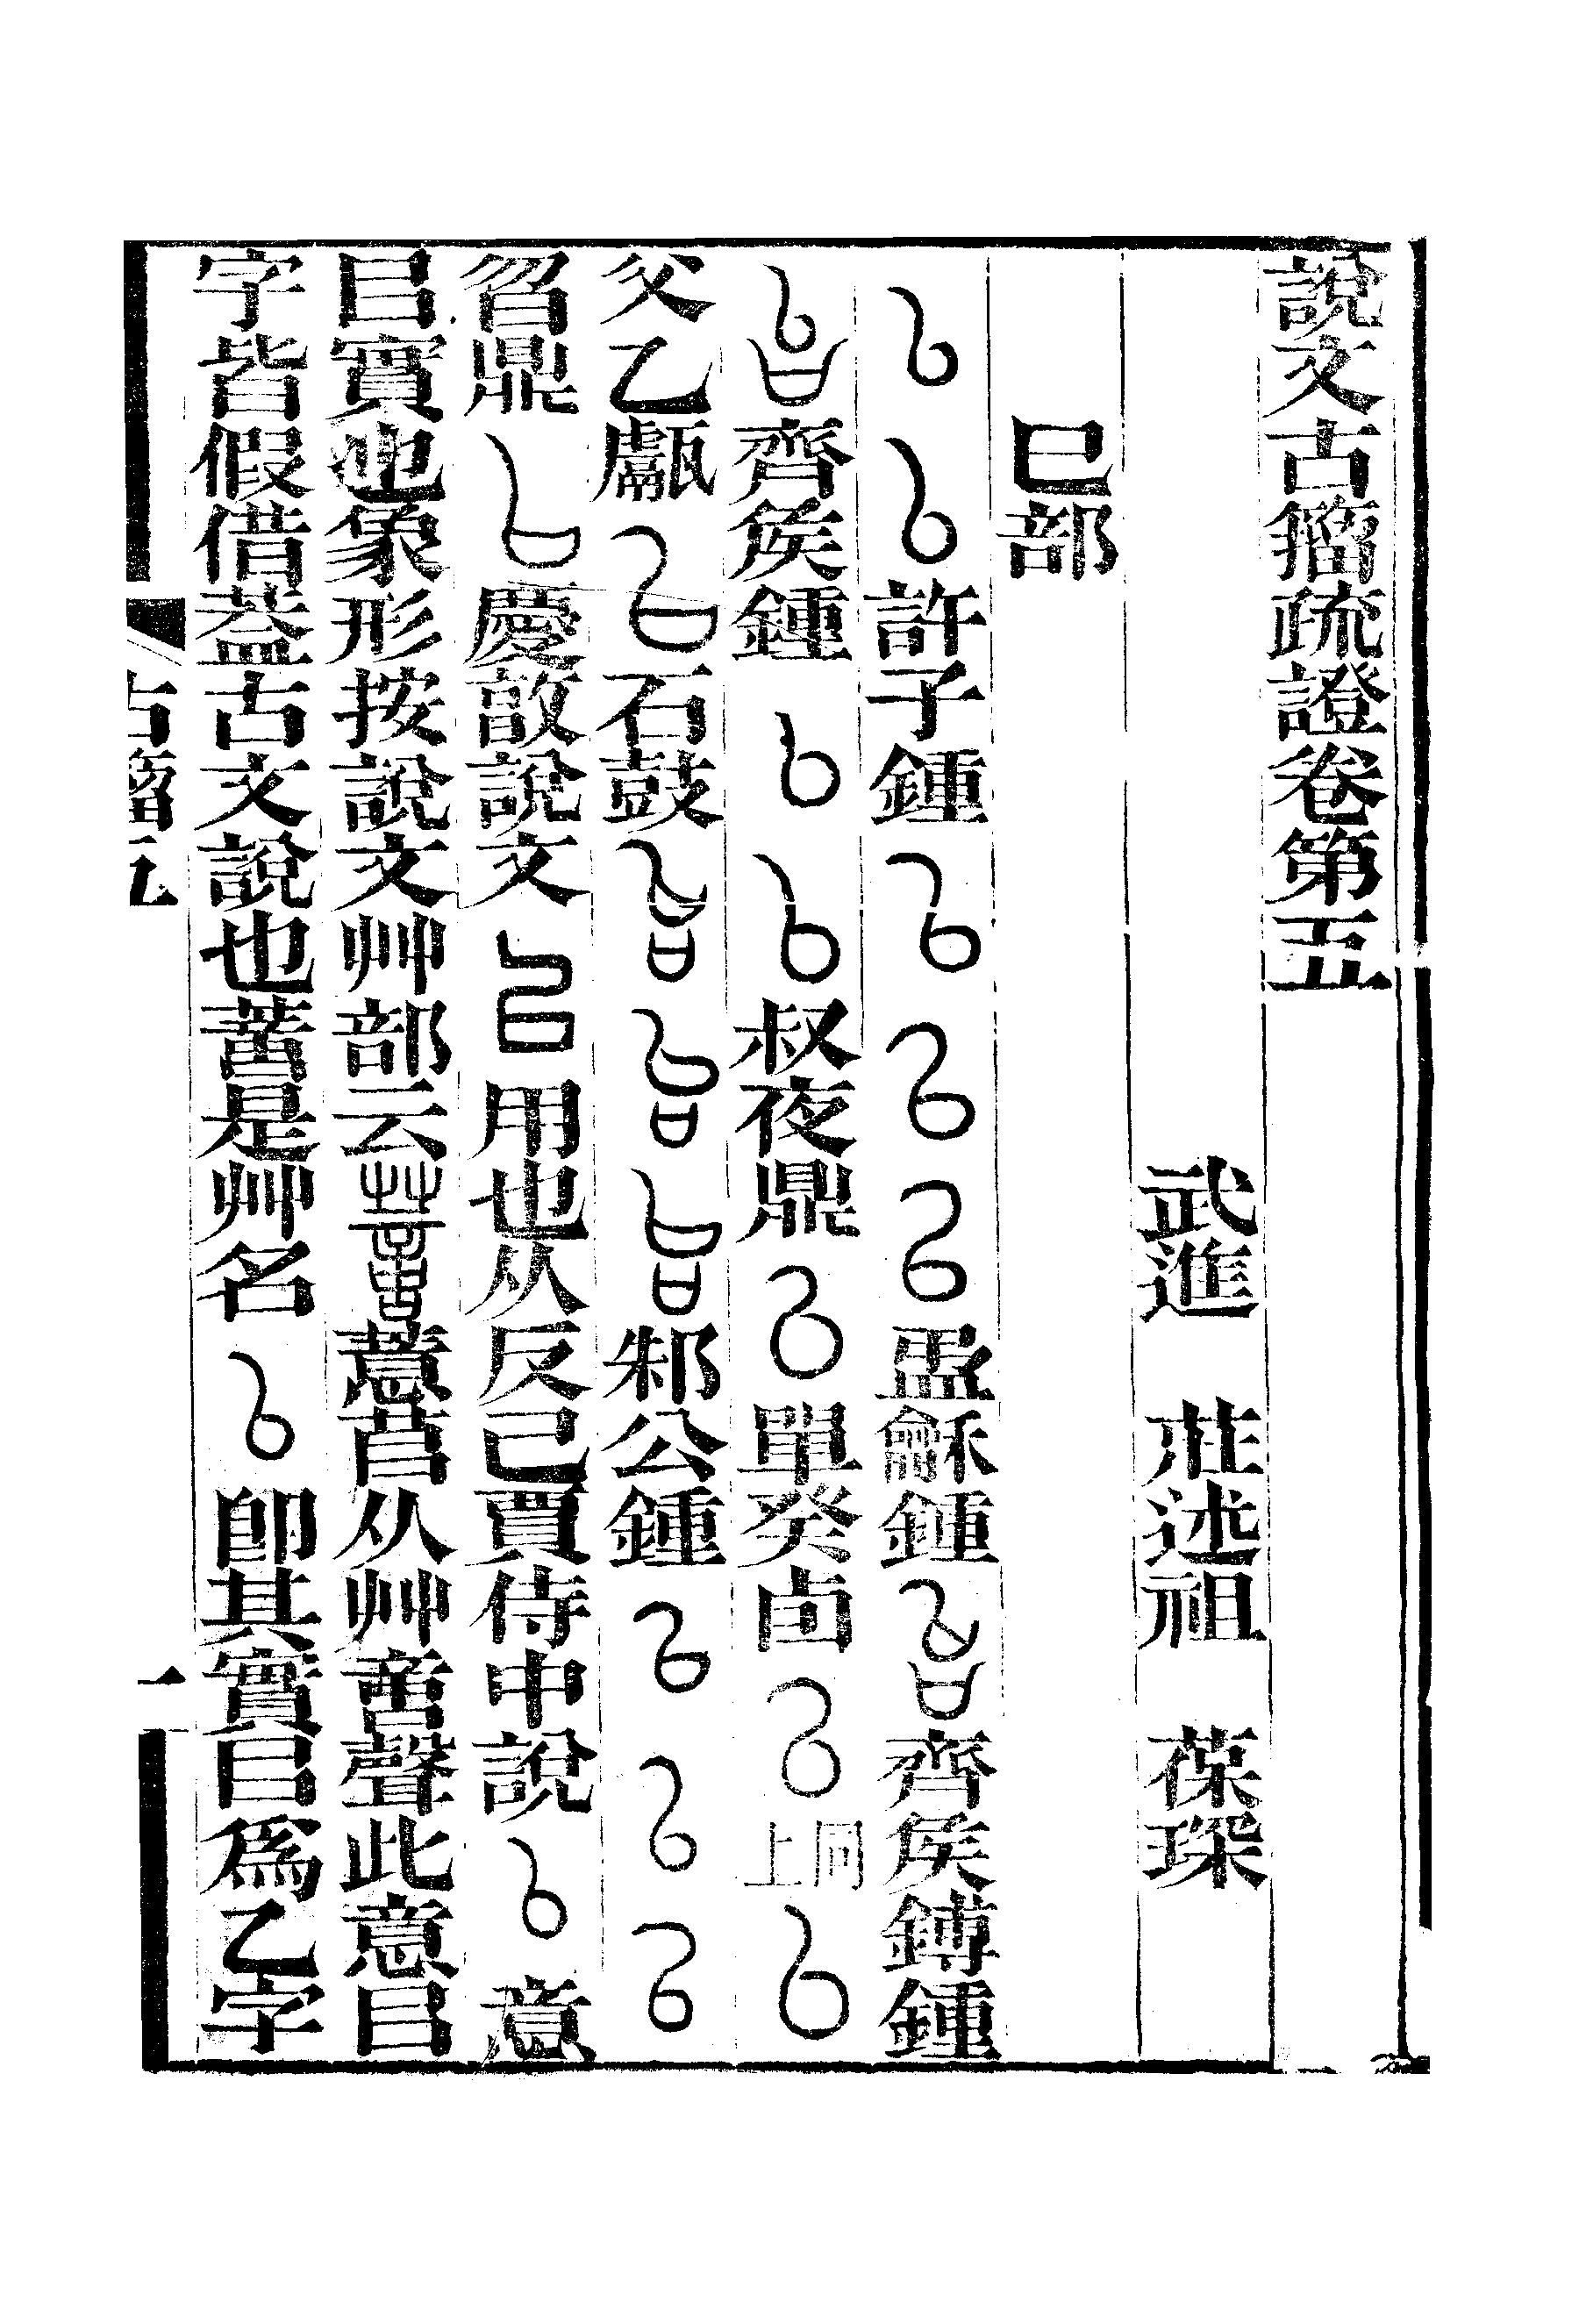 說文古籀疏證卷第五
武進 莊述祖 葆琛
巳部
許子鍾 盄龢鍾 齊矦鎛鍾
齊矦鍾 叔夜鼎 單癸卣 同上
父乙甗 石鼓 邾公鍾
曶鼎 慶㪤說文 用也从反已賈侍中說 意
㠯實也象形按說文艸部云 薏苢从艸啻聲此意㠯
字皆假借葢古文說也蓄是艸名 卽其實㠯爲乙字
古籀五
一